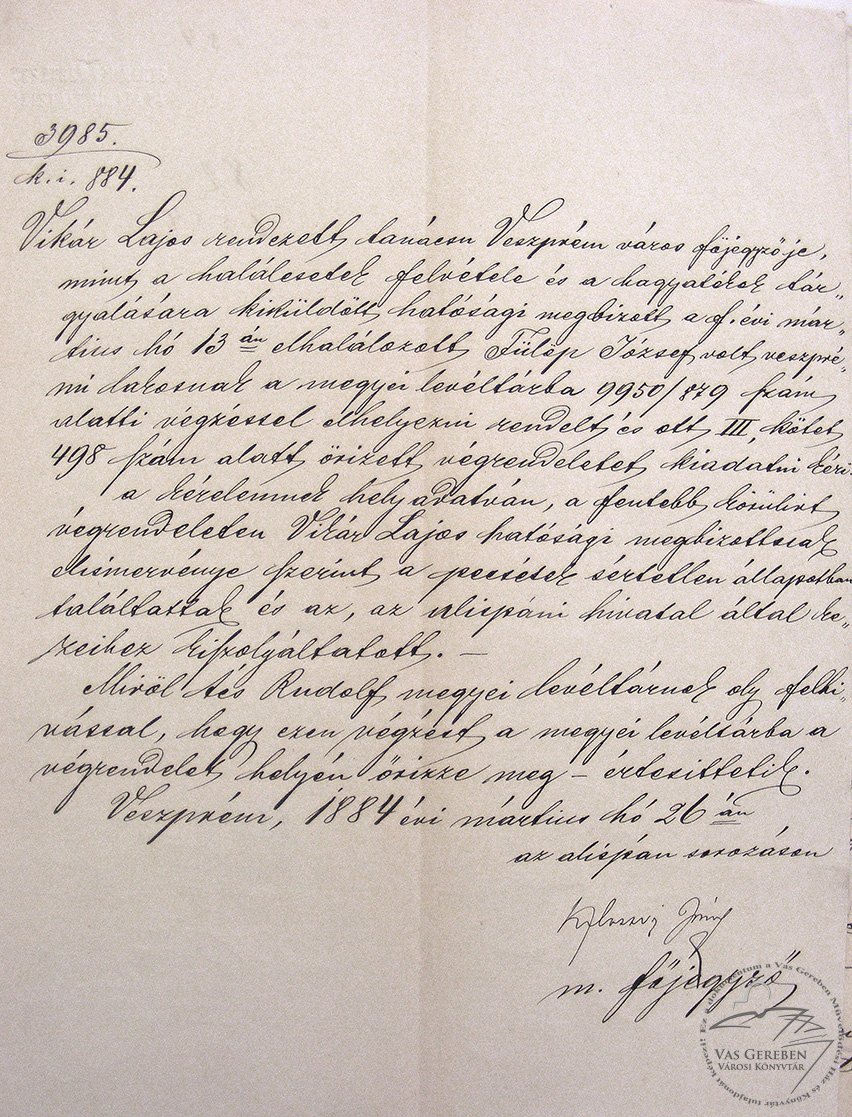 3985.
k. i. 884.
Vikár Lajos rendezett tanácsu Veszprém város főjegyzője,
mint a halálesetek felvétele és a hagyatékok tár„
gyalására kiküldött hatósági megbizott a f. évi már„
tius hó 13 án elhalálozott Fülöp József volt veszpré„
mi lakosnak a megyei levéltárba 9950/879 szám
alatti végzéssel elhelyezni rendelt és ott III. kötet
498 szám alatt őrizett végrendeletet kiadatni kéri.
a kérelemnek hely adatván, a fentebb körülirt
végrendeleten Vikár Lajos hatósági megbizottnak
elismervénye szerint a pecsétek sértetlen állapotban
találtattak és az, az alispáni hivatal által ke„
zeihez kiszolgáltatott. —
Miről Ács Rudolf megyei levéltárnok oly felhi„
vással, hogy ezen végzést a megyei levéltárba a
végrendelet helyén őrizze meg – értesittetik.
Veszprém, 1884 évi mártius hó 26 án
az alispán
m. főjegyző
Ez a dokumentum a Vas Gereben Művelődési Ház és Könyvtár tulajdonát képezi!
VAS GEREBEN
VÁROSI KÖNYVTÁR